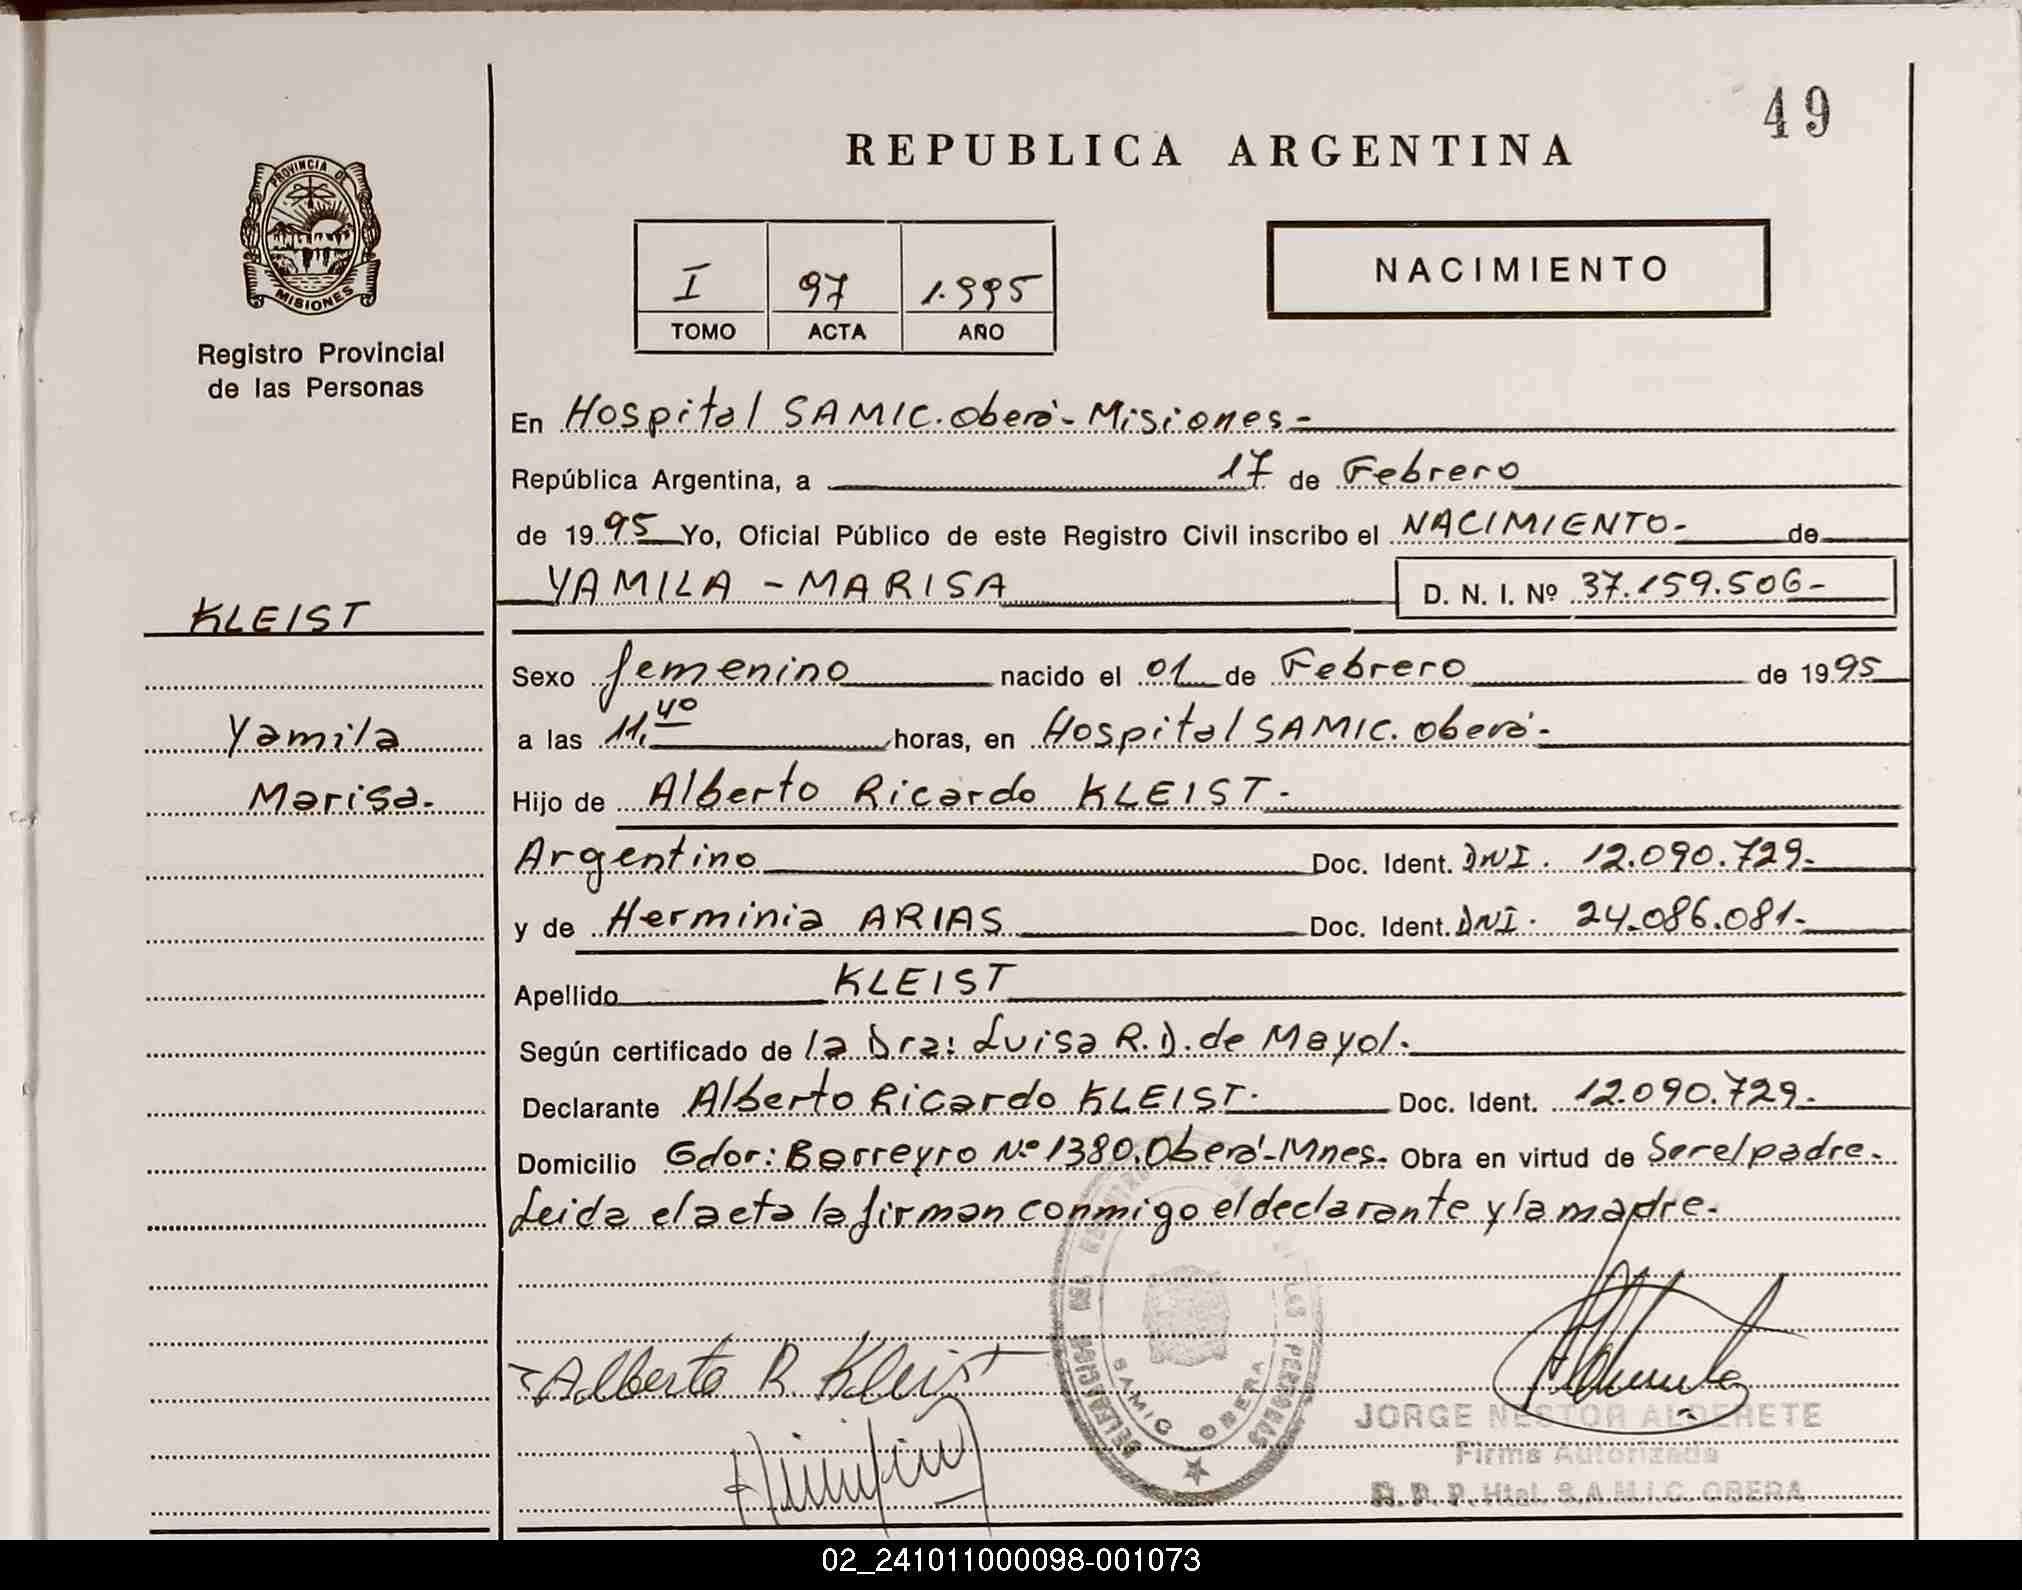 49
REPUBLICA ARGENTINA
PROVINCIA DE
MISIONES
Registro Provincial
de las Personas
I 97 1.995
TOMO ACTA AÑO
NACIMIENTO
En Hospital SAMIC. Oberá - Misiones -
República Argentina, a 17 de Febrero
de 1995 Yo, Oficial Público de este Registro Civil inscribo el NACIMIENTO- de
YAMILA - MARISA D. N. I. Nº 37.159.506-
KLEIST
Yamila
Marisa.
Sexo femenino nacido el 01 de Febrero de 1995
a las 11,40 horas, en Hospital SAMIC. Oberá -
Hijo de Alberto Ricardo KLEIST -
Argentino Doc. Ident. DNI. 12.090.729-
y de Herminia ARIAS Doc. Ident. DNI. 24.086.081-
Apellido KLEIST
Según certificado de la Dra: Luisa R. D. de Mayol.
Declarante Alberto Ricardo KLEIST. Doc. Ident. 12.090.729-
Domicilio Gdor: Barreyro Nº 1380. Oberá - Mnes. Obra en virtud de Ser el padre.
Leida el acta la firman conmigo el declarante y la madre.
DEL LAS PERSONAS
SAMIC OBERA
Alberto R. Kleist
JORGE NESTOR ALDERETE
Firma Autorizada
R.P.P. Htal. S.A.M.I.C. OBERA
02_241011000098-001073